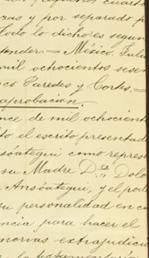 y por separado p
Todo lo dicho es segun
tender.— México, Julio
mil ochocientos sesen
co Paredes y Cortes.—
aprobacion.
nce de mil ochocient
to el escrito presentad
nsótegui como repres
su Madre D.ª Dolo
Ansótegui, y el pod
su personalidad en ca
encia para hacer el
mornas extrajudici